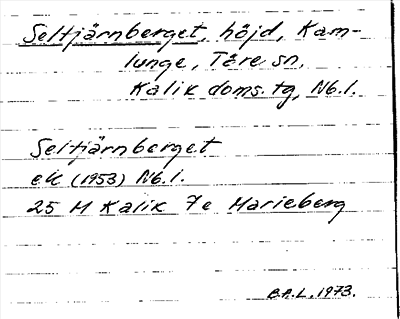 Seltjärnberget, höjd, Kam-
lunge, Töre sn,
Kalix doms. tg, Nb. l.
Seltjärnberget
ek (1953) Nb. l.
25 M Kalix 7e Marieberg
B.A.L. 1973.